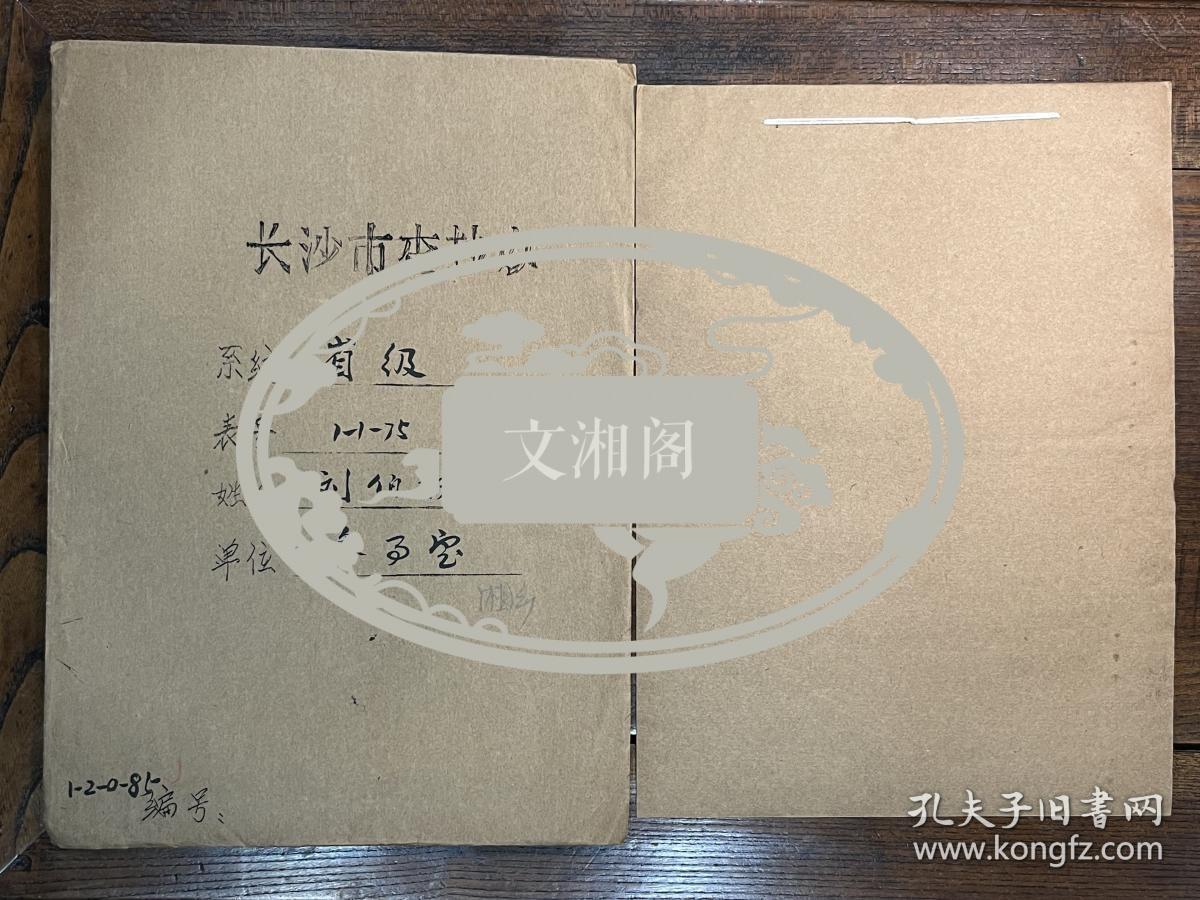 长沙市查抄
系统 省级
表号 1-1-75
姓 刘伯
单位 室
1-2-0-85
编号:
文湘阁
孔夫子旧書网
www.kongfz.com